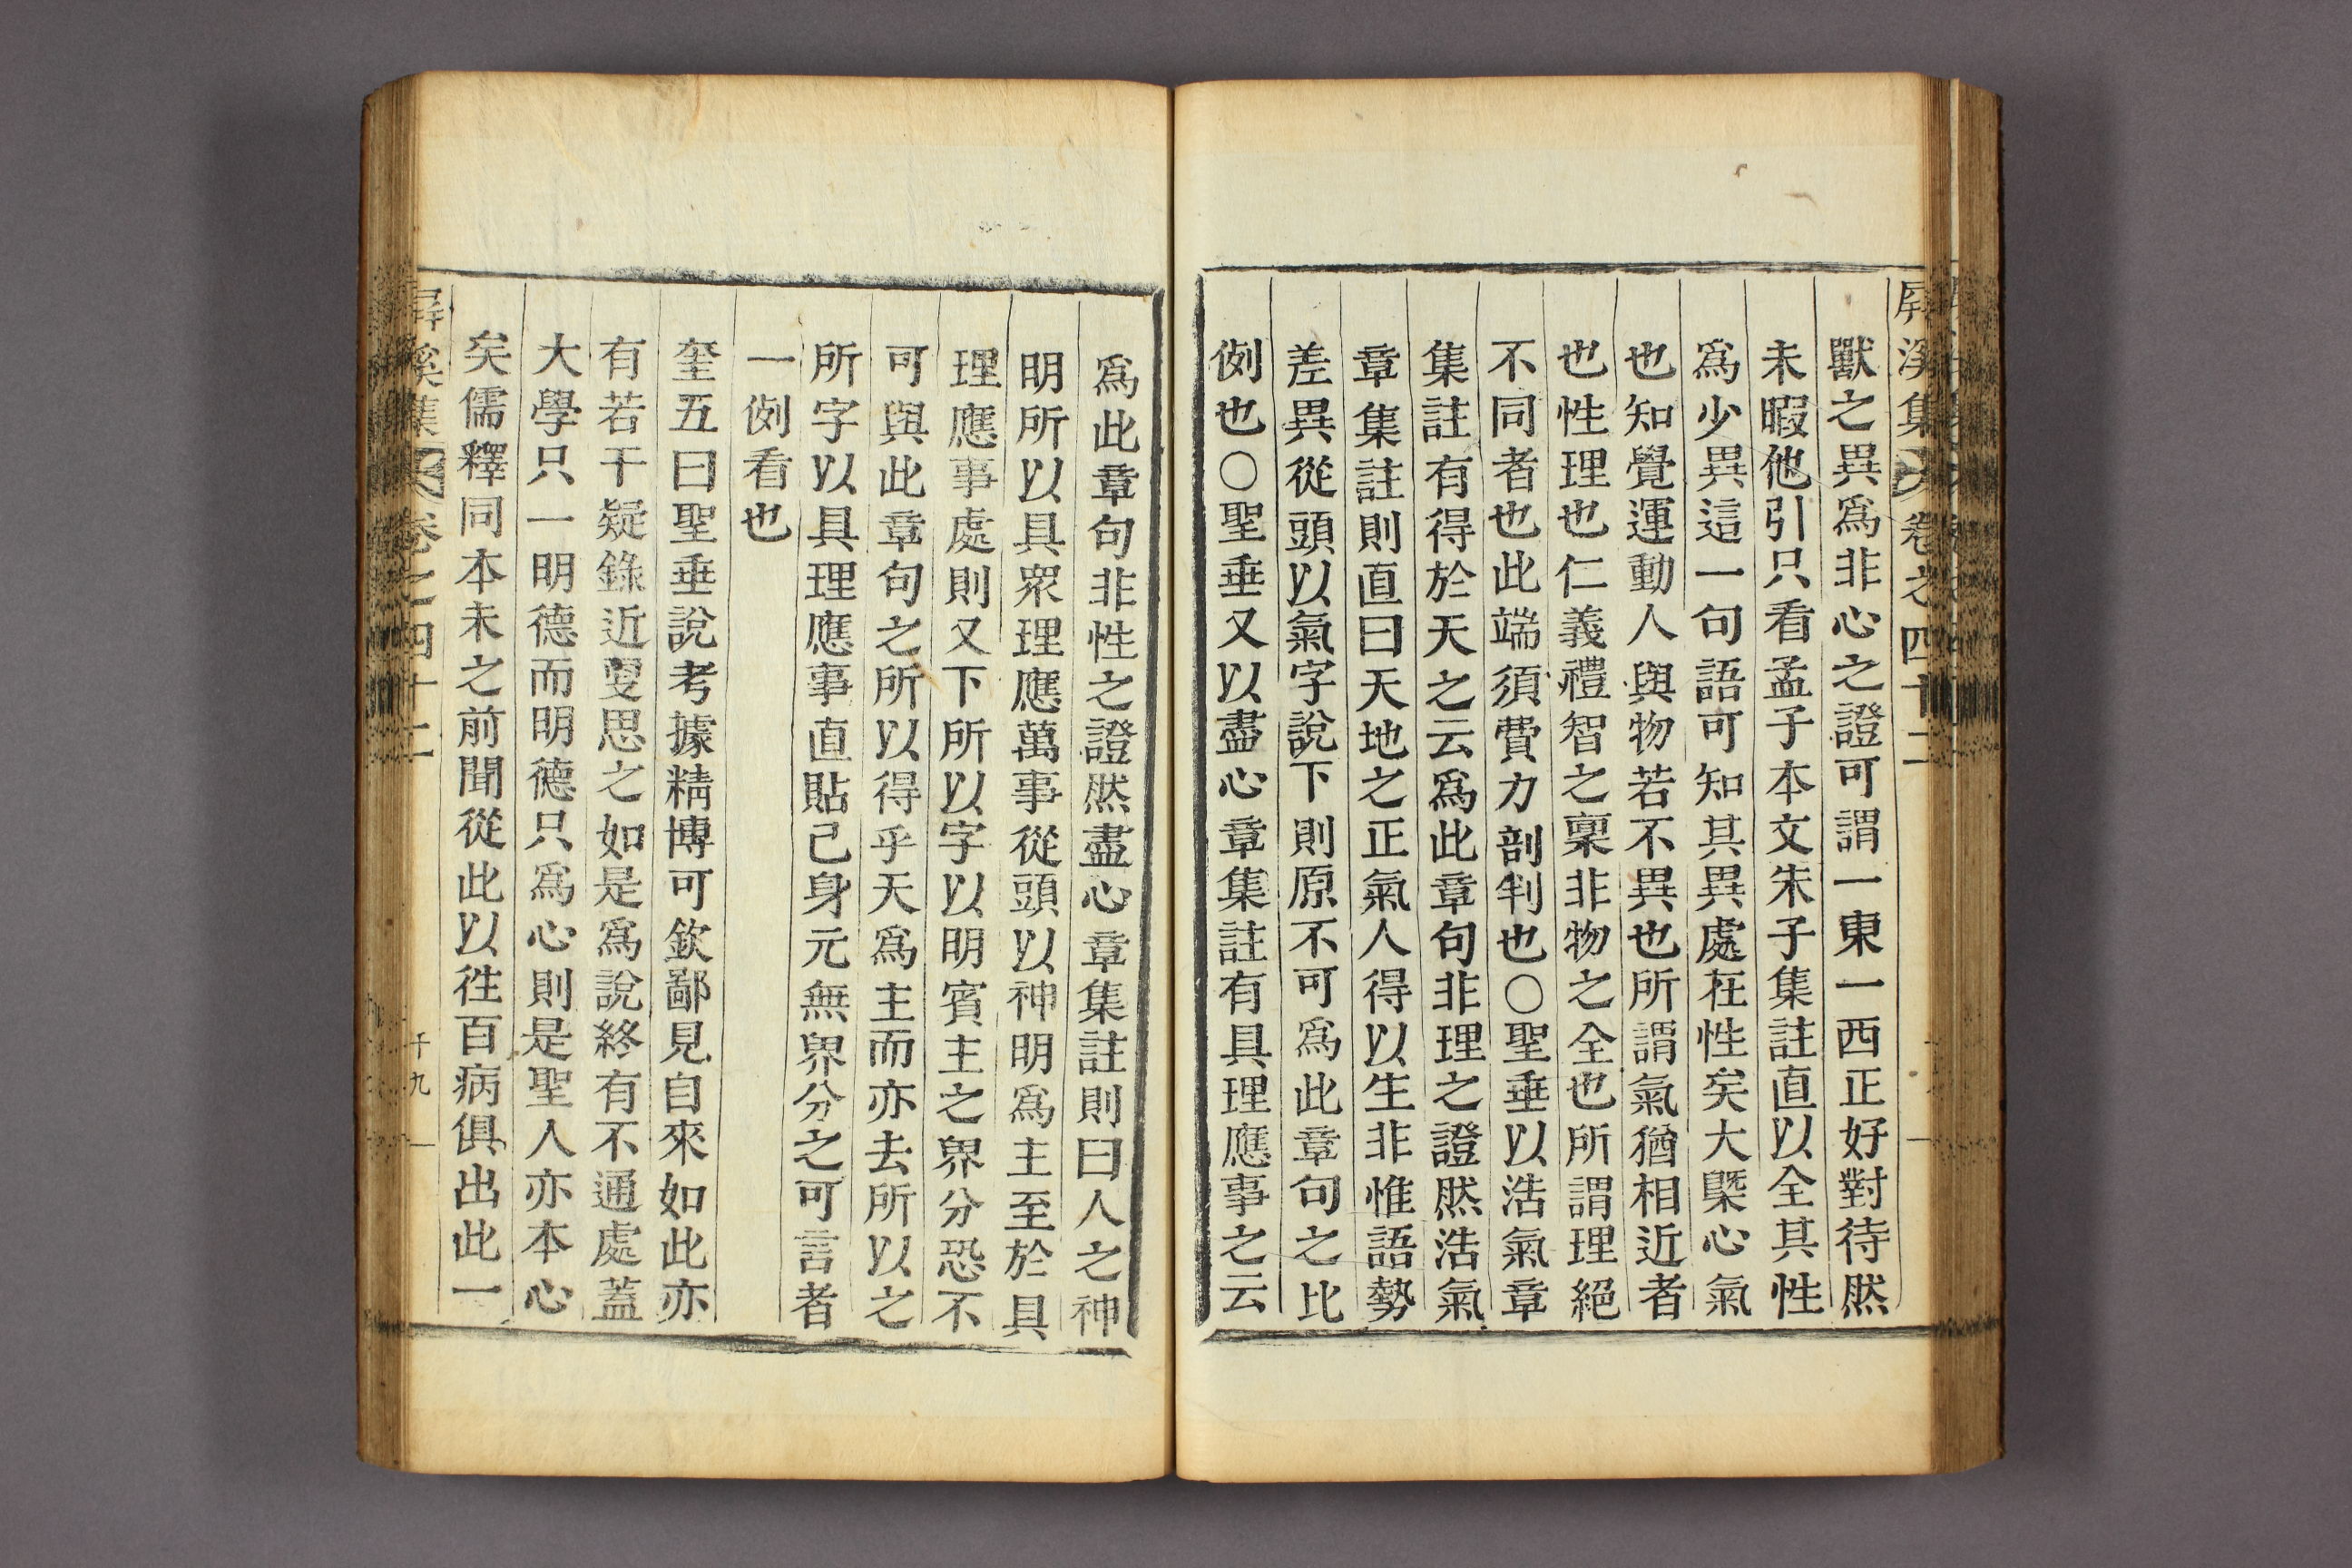 屛溪集 卷之四十二
獸之異爲非心之證可謂一東一西正好對待然
未暇他引只看孟子本文朱子集註直以全其性
爲少異這一句語可知其異處在性矣大槩心氣
也知覺運動人與物若不異也所謂氣猶相近者
也性理也仁義禮智之稟非物之全也所謂理絕
不同者也此端須費力剖判也○聖垂以浩氣章
集註有得於天之云爲此章句非理之證然浩氣
章集註則直曰天地之正氣人得以生非惟語勢
差異從頭以氣字說下則原不可爲此章句之比
例也○聖垂又以盡心章集註有具理應事之云
爲此章句非性之證然盡心章集註則曰人之神
明所以具衆理應萬事從頭以神明爲主至於具
理應事處則又下所以字以明賓主之界分恐不
可與此章句之所以得乎天爲主而亦去所以之
所字以具理應事直貼己身元無界分之可言者
一例看也
奎五曰聖垂說考據精博可欽鄙見自來如此亦
有若干疑錄近叟思之如是爲說終有不通處蓋
大學只一明德而明德只爲心則是聖人亦本心
矣儒釋同本未之前聞從此以徃百病俱出此一
屛溪集 卷之四十二 千九